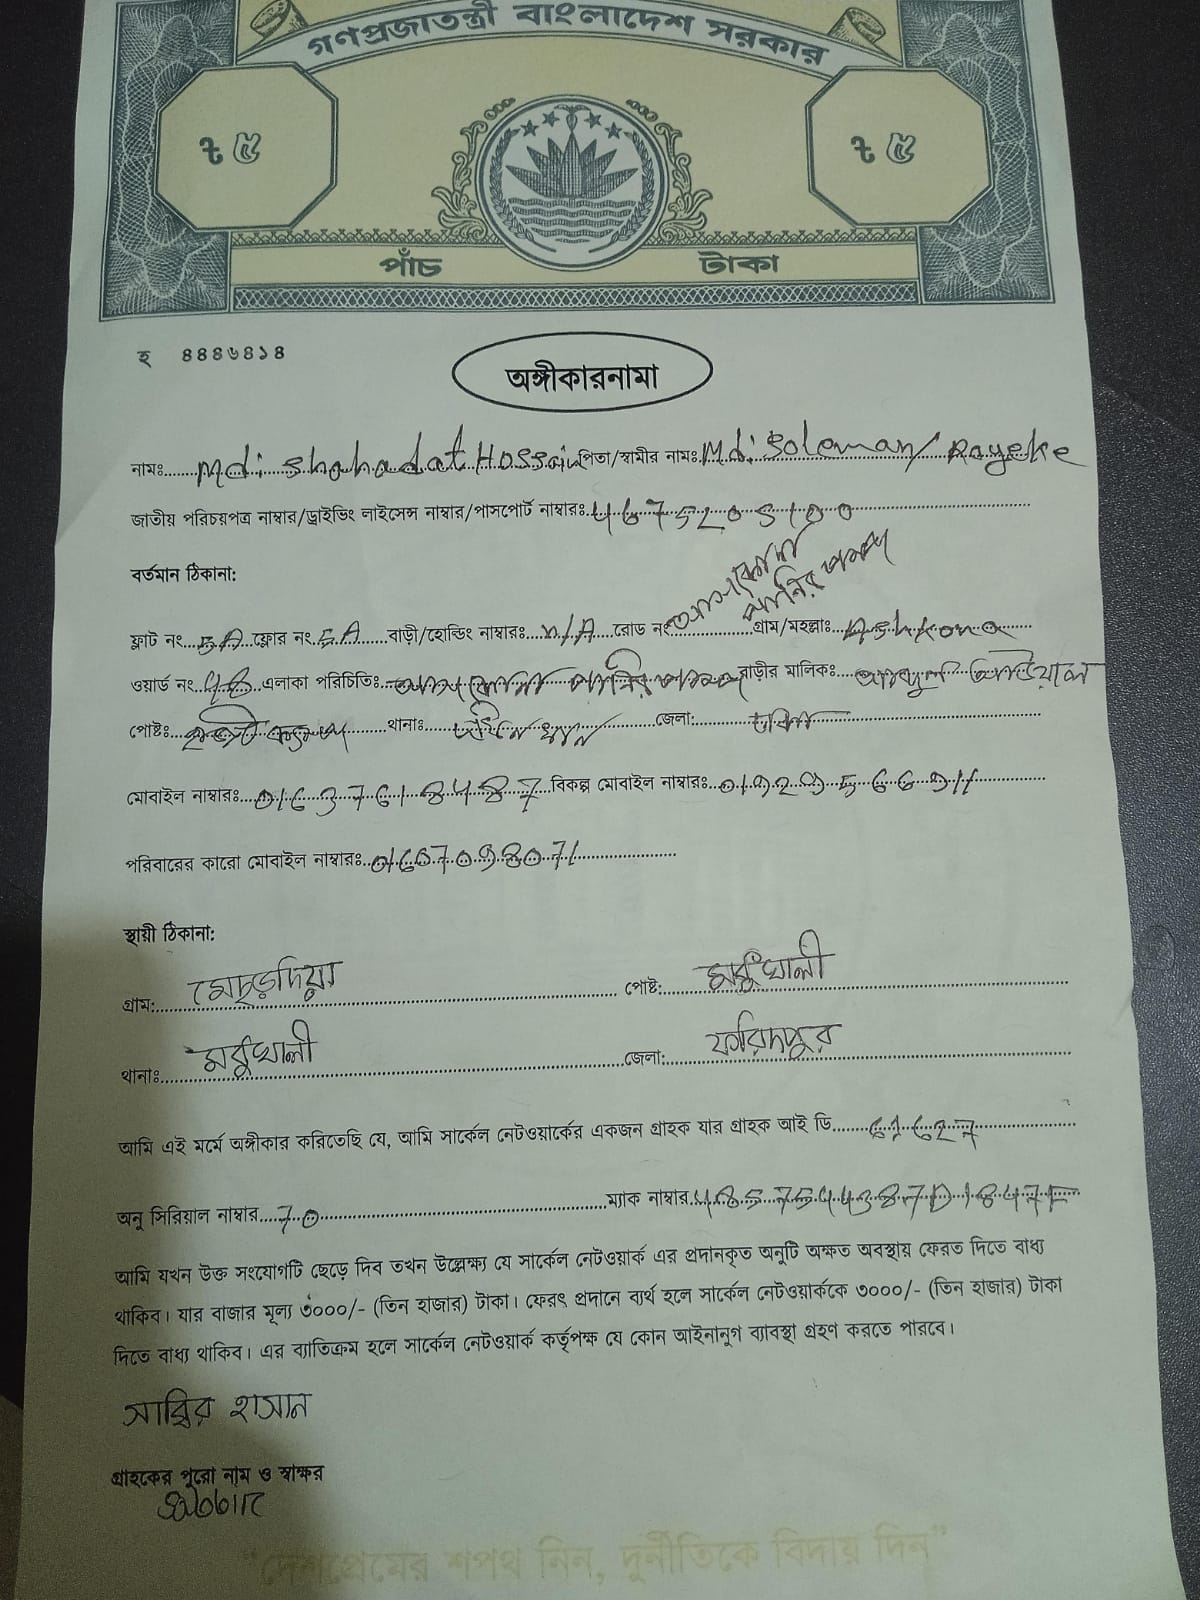 গণপ্রজাতন্ত্রী বাংলাদেশ সরকার
৳ ৫ ৳ ৫
পাঁচ টাকা
হ ৪৪৪৬৪১৪
অঙ্গীকারনামা
নামঃ Md: Shahadat Hossain পিতা/স্বামীর নামঃ Md: Soleman/
জাতীয় পরিচয়পত্র নাম্বার/ড্রাইভিং লাইসেন্স নাম্বার/পাসপোর্ট নাম্বারঃ 4675205100
বর্তমান ঠিকানা:
পানির পাম্প
ফ্লাট নং 5A ফ্লোর নং 5A বাড়ী/হোল্ডিং নাম্বারঃ N/A রোড নং গ্রাম/মহল্লাঃ Ashkona
ওয়ার্ড নং এলাকা পরিচিতিঃ পানির পাম্প বাড়ীর মালিকঃ আবদুল
পোষ্টঃ থানাঃ জেলা: ঢাকা
মোবাইল নাম্বারঃ 01637618487 বিকল্প মোবাইল নাম্বারঃ 01929566911
পরিবারের কারো মোবাইল নাম্বারঃ
স্থায়ী ঠিকানা:
গ্রাম: পোষ্ট: মধুখালী
থানাঃ মধুখালী জেলা: ফরিদপুর
আমি এই মর্মে অঙ্গীকার করিতেছি যে, আমি সার্কেল নেটওয়ার্কের একজন গ্রাহক যার গ্রাহক আই ডি 61627
অনু সিরিয়াল নাম্বার 70 ম্যাক নাম্বার 4857544387D1847F
আমি যখন উক্ত সংযোগটি ছেড়ে দিব তখন উল্লেক্ষ্য যে সার্কেল নেটওয়ার্ক এর প্রদানকৃত অনুটি অক্ষত অবস্থায় ফেরত দিতে বাধ্য
থাকিব। যার বাজার মূল্য ৩০০০/- (তিন হাজার) টাকা। ফেরৎ প্রদানে ব্যর্থ হলে সার্কেল নেটওয়ার্ককে ৩০০০/- (তিন হাজার) টাকা
দিতে বাধ্য থাকিব। এর ব্যাতিক্রম হলে সার্কেল নেটওয়ার্ক কর্তৃপক্ষ যে কোন আইনানুগ ব্যাবস্থা গ্রহণ করতে পারবে।
সাব্বির হাসান
গ্রাহকের পুরো নাম ও স্বাক্ষর
Sabbir
"দেশপ্রেমের শপথ নিন, দুর্নীতিকে বিদায় দিন"